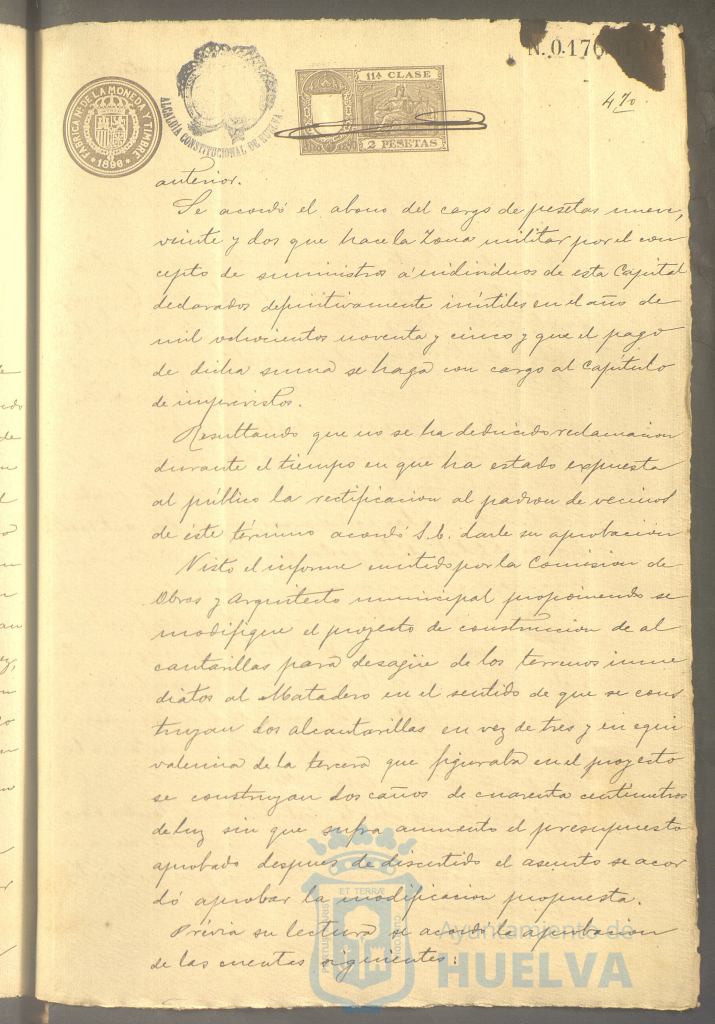 N. 0.176
11ª CLASE
2 PESETAS
FABRICA Nl. DE LA MONEDA Y TIMBRE
1896
ALCALDIA CONSTITUCIONAL DE HUELVA
470
anterior.
Se acordó el abono del cargo de pesetas nueve,
veinte y dos que hace la Zona militar por el con
cepto de suministros á individuos de esta Capital
declarados definitivamente inútiles en el año de
mil ochocientos noventa y cinco y que el pago
de dicha suma se haga con cargo al Capítulo
de imprevistos.
Resultando que no se ha deducido reclamacion
durante el tiempo en que ha estado expuesta
al público la rectificacion al padron de vecinos
de éste término acordó S.E. darle su aprobacion
Visto el informe emitido por la Comision de
Obras y Arquitecto municipal proponiendo se
modifique el proyecto de construccion de al
cantarillas para desagüe de los terrenos inme
diatos al Matadero en el sentido de que se cons
truyan dos alcantarillas en vez de tres y en equi
valencia de la tercera que figuraba en el proyecto
se construyan dos caños de cuarenta centimetros
de luz sin que sufra aumento el presupuesto
aprobado despues de discutido el asunto se acor
dó aprobar la modificacion propuesta.
Prévia su lectura se acordó la aprobacion
de las cuentas siguientes:
ET TERRÆ
Ayuntamiento de
HUELVA